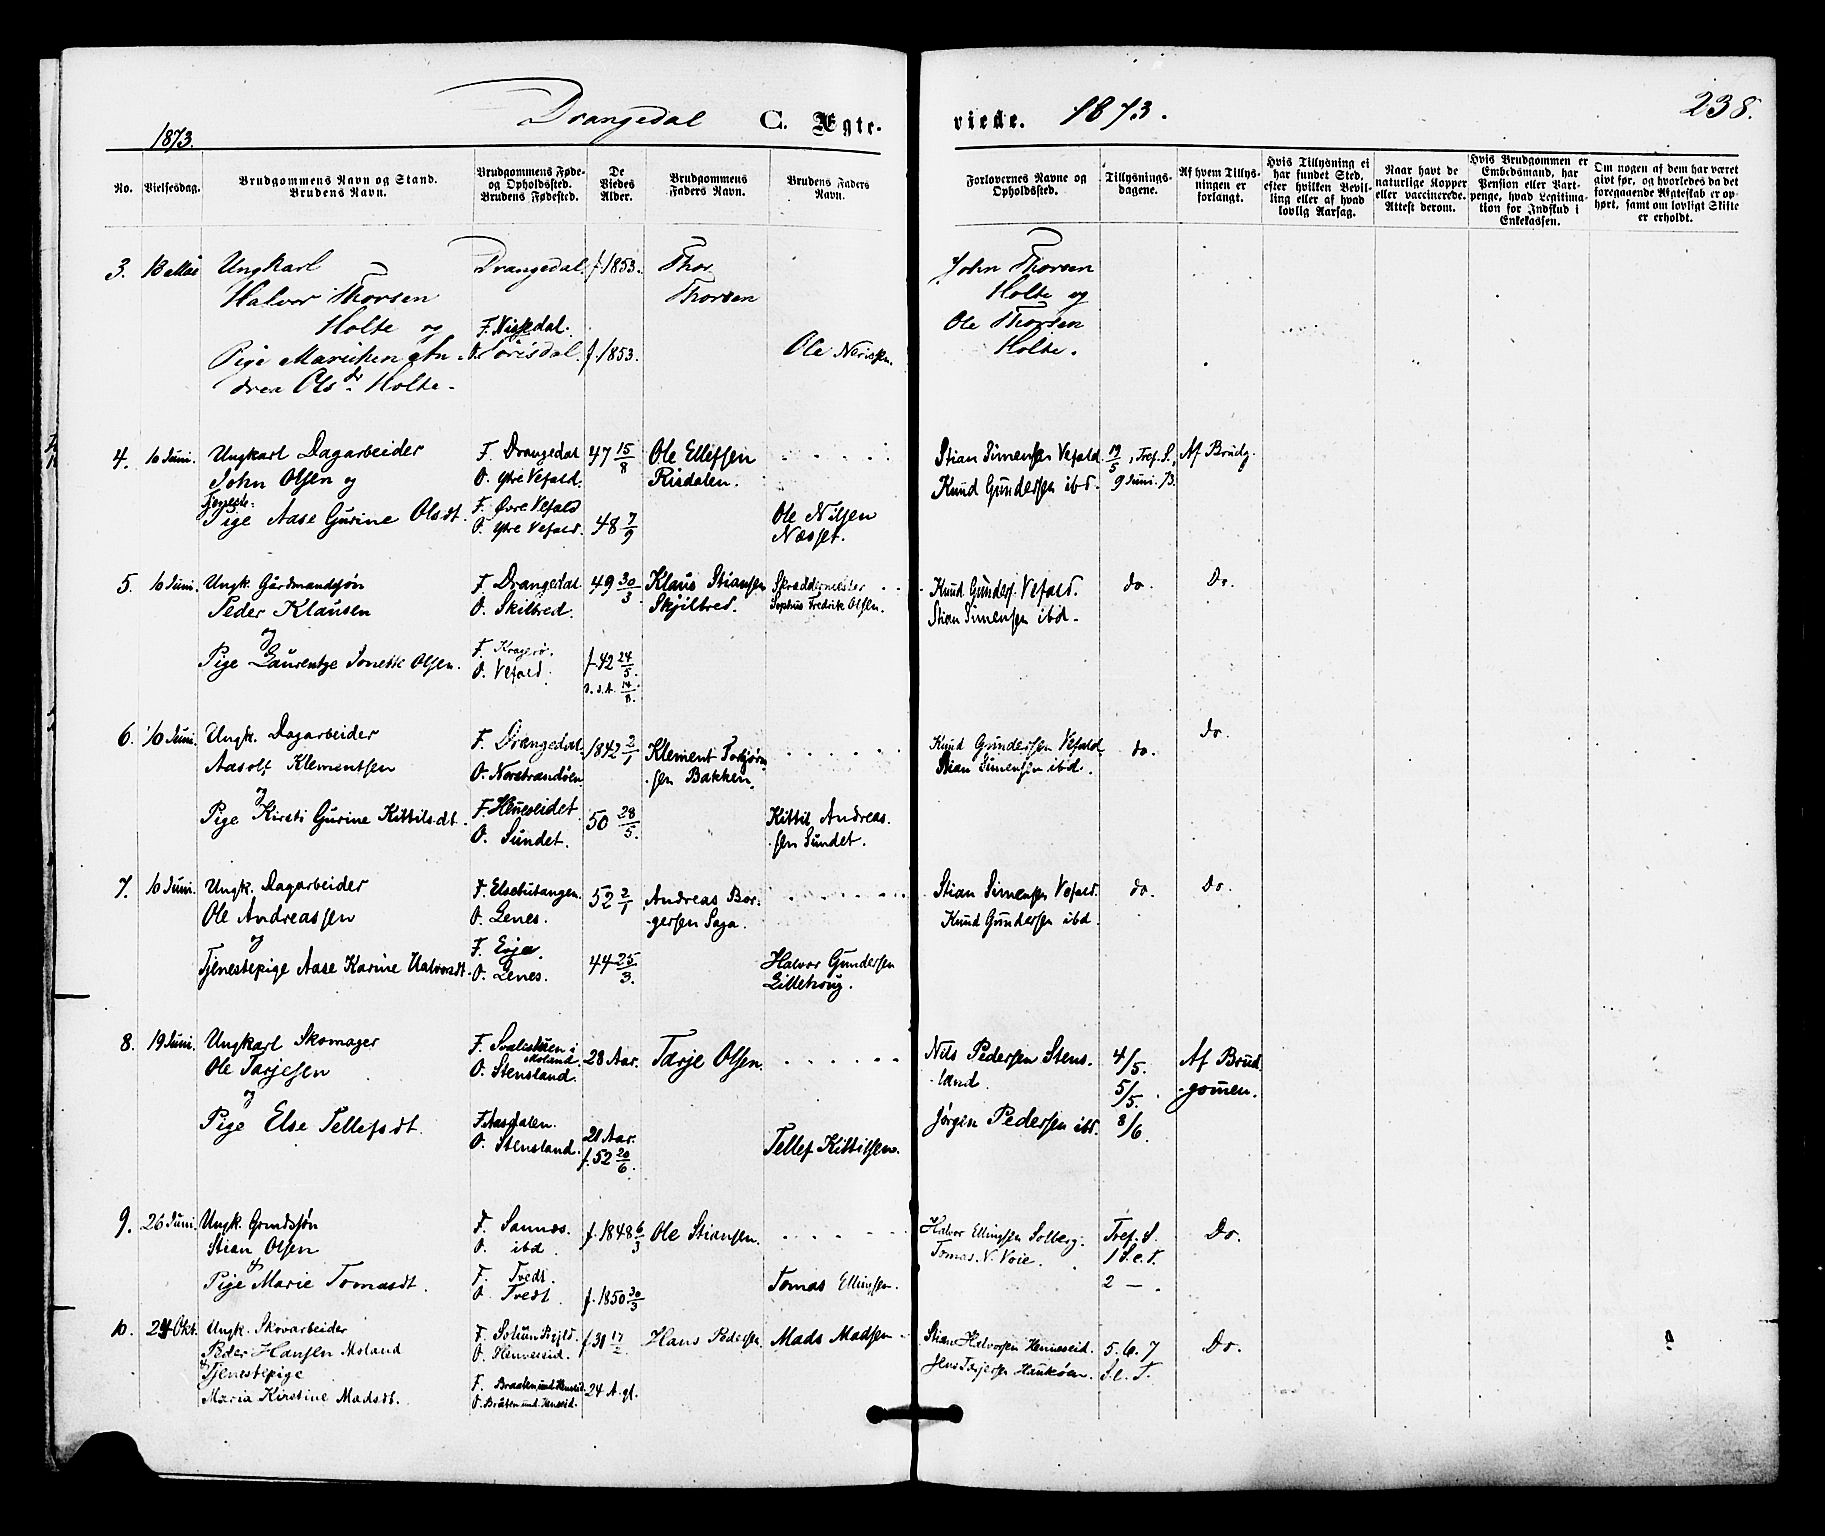 Drangedal C. Ægte- viede. 1873. 238.
1873.
No.
Vielsesdag.
Brudgommens Navn og Stand.
Brudens Navn.
Brudgommens Føde-
og Opholdssted.
Brudens Fødested.
De
Viedes
Alder.
Brudgommens
Faders Navn.
Brudens Faders
Navn.
Forlovernes Navne og
Opholdssted.
Tillysnings-
dagene.
Af hvem Tillys-
ningen er
forlangt.
Hvis Tillysning ei
har fundet Sted,
efter hvilken Bevil-
ling eller af hvad
lovlig Aarsag.
Naar havt de
naturlige Kopper
eller vaccinerede.
Attest derom.
Hvis Brudgommen er
Embedsmand, har
Pension eller Vart-
penge, hvad Legitima-
tion for Indskud i
Enkekassen.
Om nogen af dem har været
givt før, og hvorledes da det
foregaaende Ægteskab er op-
hørt, samt om lovligt Skifte
er erholdt.
3. 13 Mai Ungkarl Drangedal. f. 1853. Thor John Thorsen
Halvor Thorsen Thorsen Holte og
Holte og F. Nissedal. Ole Thorsen
Pige Marichen An- O. Tørisdal. f. 1853. Ole Neriksen. Holte.
drea Olsdr Holte.
4. 10 Juni. Ungkarl Dagarbeider F. Drangedal 47 15/8 Ole Ellefsen Stian Simensen Vefald 19/5, Tref. S., Af Brudg.
John Olsen og O. Ytre Vefald. Risdalen. Knud Gundersen ibd. 9 Juni. 73.
Tjeneste-
Pige Aase Gurine Olsdt. F. Øvre Vefald 48 7/9 Ole Nilsen
O. Ytre Vefald. Næsset.
5. 10 Juni. Ungk. Gårdmandssøn F. Drangedal 49 30/3 Klaus Stiansen Skræddermester Knud Gunders. Vefald. do. Do.
Peder Klausen O. Skilbred. Skjilbred. Sophus Fredrik Olsen. Stian Simensen ibd.
og
Pige Laurentze Tonette Olsen. F. Kragerø. f. 42 24/5
O. Vefald. 14/8
6. 10 Juni. Ungk. Dagarbeider F. Drangedal. 1842 2/1 Klement Torbjørn- Knud Gundersen Vefald do. Do.
Aasolf Klementsen O. Norstrandøen sen Bakken. Stian Simensen ibd.
og
Pige Kirsti Gurine Kittilsdt. F. Henneseidet 50 28/5. Kittil Andreas-
O. Sundet. sen Sundet.
7. 10 Juni. Ungk. Dagarbeider F. Elsebutangen. 52 2/1 Andreas Bor- Stian Simensen Vefald. do Do.
Ole Andreassen O. Lenes. gersen Saga. Knud Gundersen ibd.
og
Tjenestepige Aase Karine Halvorsdt. F. Evje. 44 25/3. Halvor Gundersen
O. Lenes. Lilletroug.
8. 19 Juni. Ungkarl Skomager F. Svalistuen i 28 Aar. Tarje Olsen. Nils Pedersen Stens- 4/5. Af Brud-
Ole Tarjesen Moland land. 5/5. gomen.
O. Stensland.
og
Pige Else Tellefsdt. F. Aasdalen. 21 Aar. Jørgen Pedersen ibd. 8/6.
O. Stensland. f. 52 20/6. Tellef Kittilsen.
9. 26 Juni. Ungk. Grmdssøn F. Sannes. f. 1848 6/3 Ole Stiansen. Halvor Ellingsen Solberg. Tref. S. Do.
Stian Olsen O. ibd Tomas. N. Voie. 1 S. e. T.
& 2 —
Pige Marie Tomasdt. F. Tvedt. f. 1850 30/3 Tomas Ellingsen.
O. Tvedt.
10. 24 Okt. Ungk. Skovarbeider F. Solum f. 30 17/2 Hans Pedersen Mads Madsen Stian Halvorsen Henneseid. 5. 6. 7 Do.
Peder Hansen Moland O. Henneseid. Jens Tarjersen Haukøen. S. e. T.
&
Tjenestepige F. Braaten 24 A. gl.
Maria Kirstine Madsdt. O. Bråten